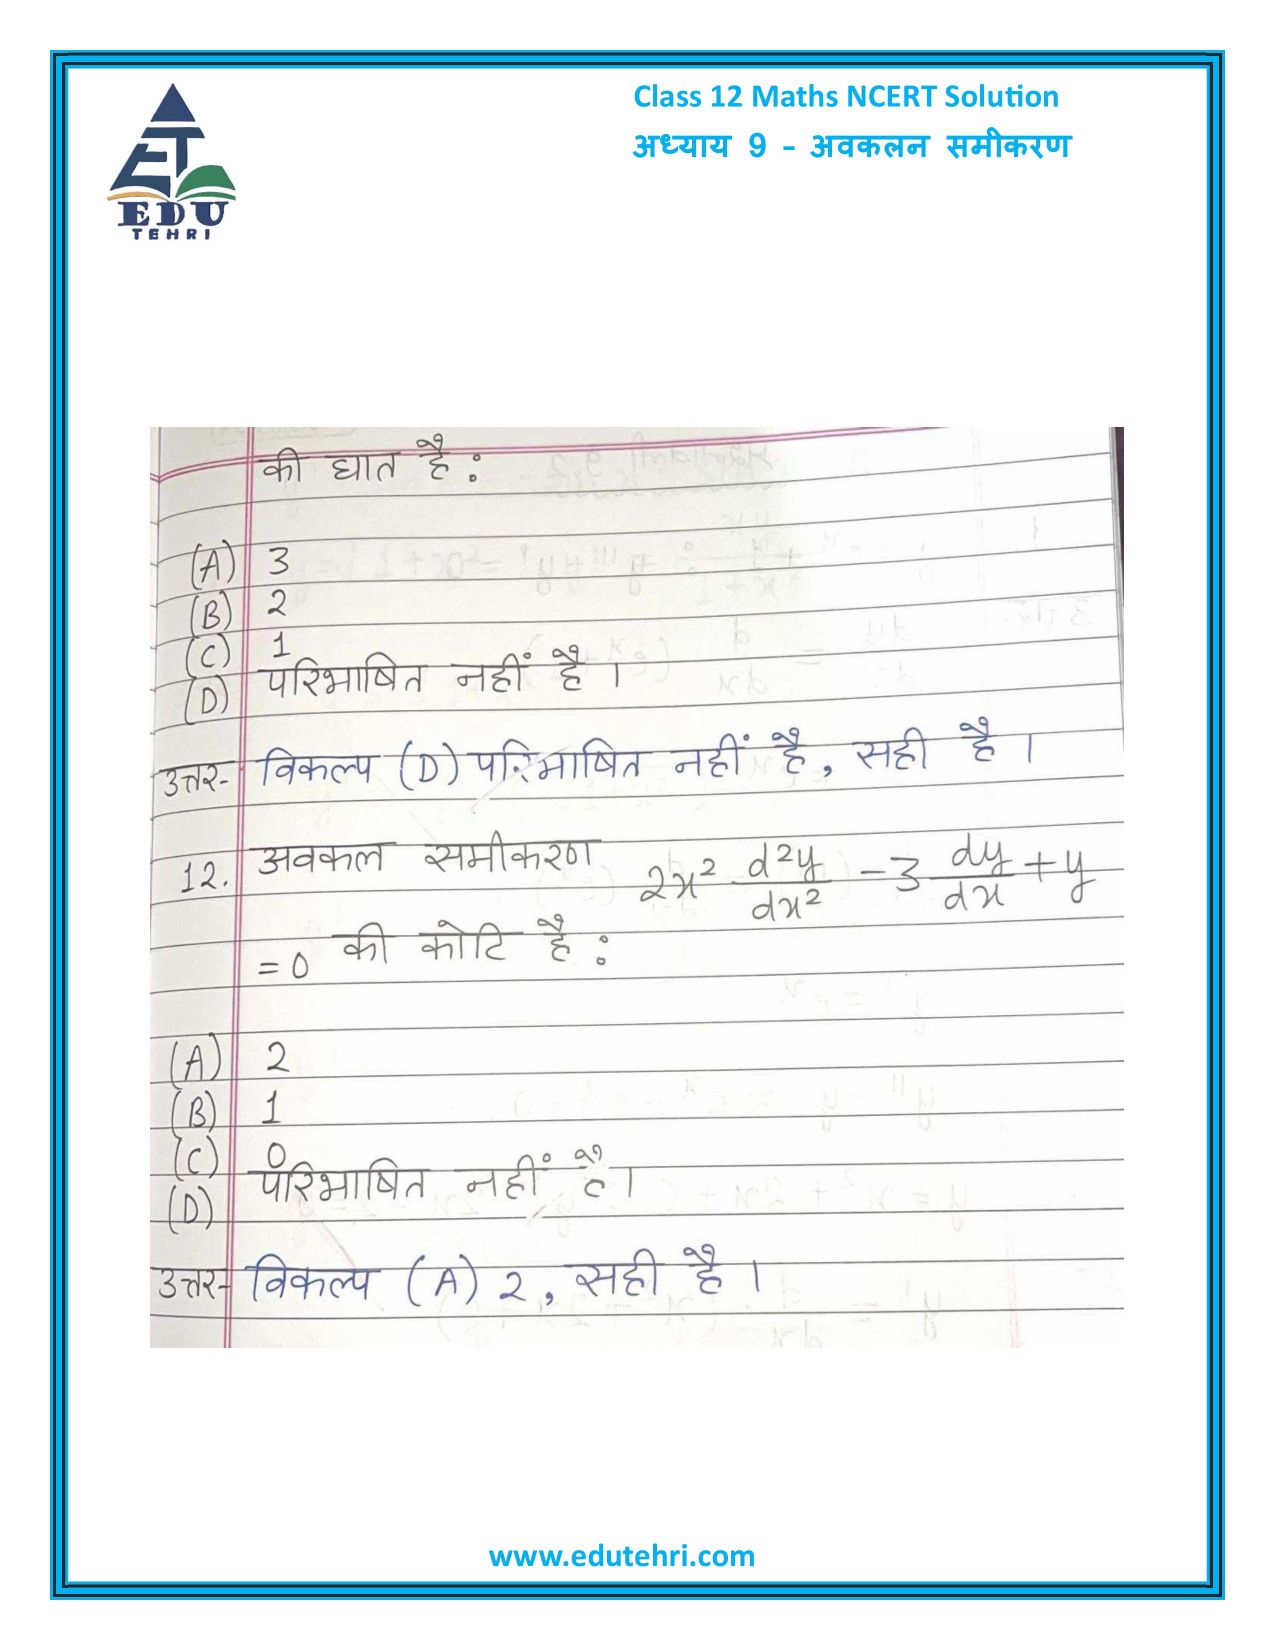 Class 12 Maths NCERT Solution
अध्याय 9 – अवकलन समीकरण
EDU
TEHRI
की घात है :
(A) 3
(B) 2
(C) 1
(D) परिभाषित नहीं है ।
उत्तर- विकल्प (D) परिभाषित नहीं है, सही है ।
12. अवकल समीकरण 2x² d²y/dx² - 3 dy/dx + y
= 0 की कोटि है :
(A) 2
(B) 1
(C) 0
(D) परिभाषित नहीं है ।
उत्तर- विकल्प (A) 2, सही है ।
www.edutehri.com